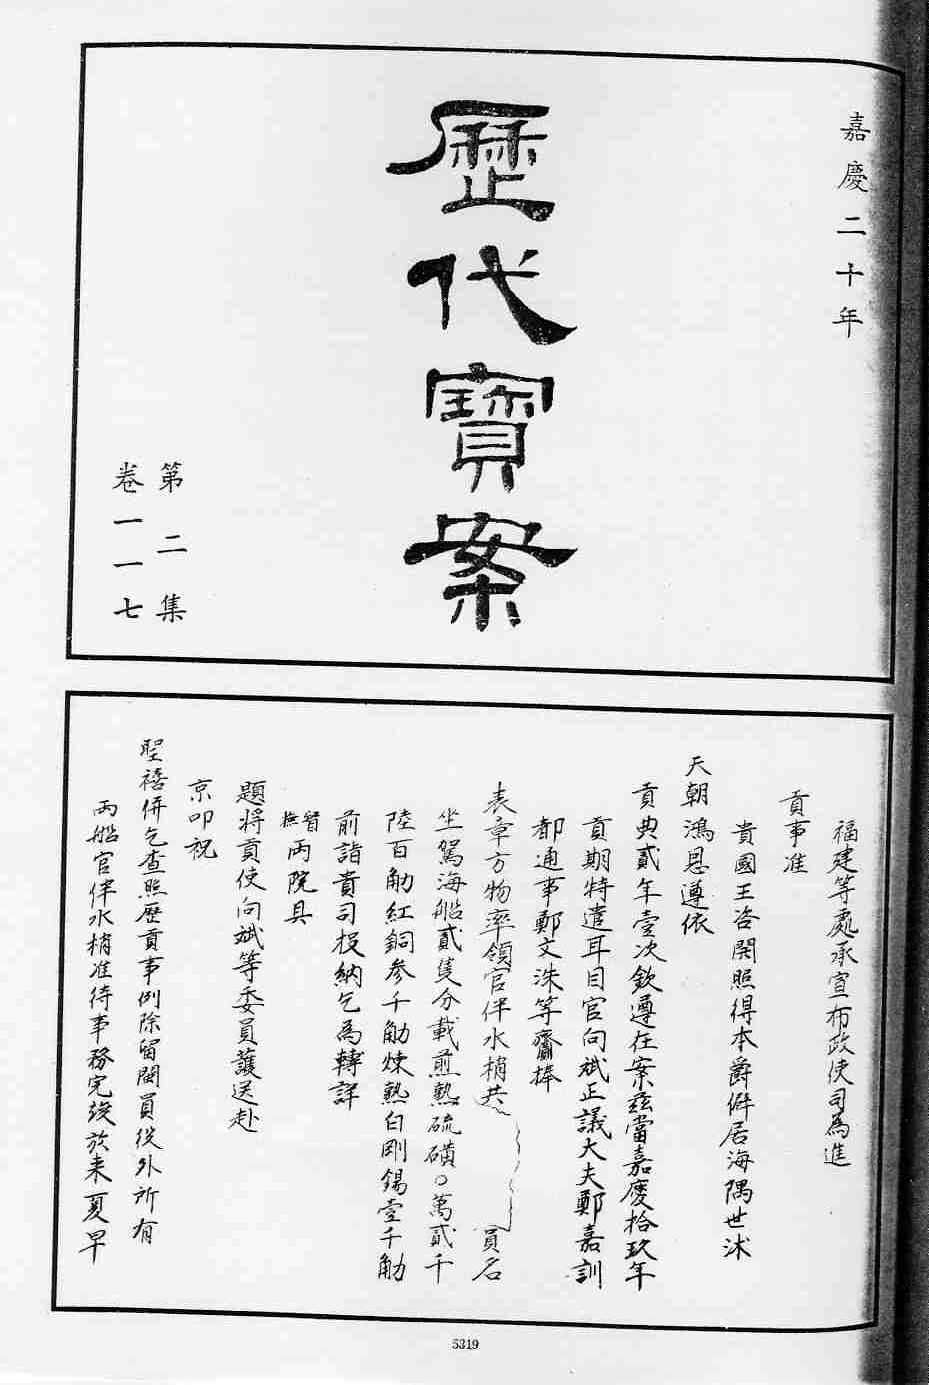 嘉慶二十年
歷代寶案
第二集
卷一一七
福建等處承宣布政使司為進
貢事准
貴國王咨開照得本爵僻居海隅世沐
天朝鴻恩遵依
貢典貳年壹次欽遵在案茲當嘉慶拾玖年
貢期特遣耳目官向斌正議大夫鄭嘉訓
都通事鄭文洙等齎捧
表章方物率領官伴水梢共
員名
坐駕海船貳隻分載煎熟硫磺○萬貳千
陸百觔紅銅參千觔煉熟白剛錫壹千觔
前詣貴司投納乞為轉詳
督撫兩院具
題將貢使向斌等委員護送赴
京叩祝
聖禧併乞查照歷貢事例除留閩員役外所有
兩船官伴水梢准待事務完竣於来夏早
5319